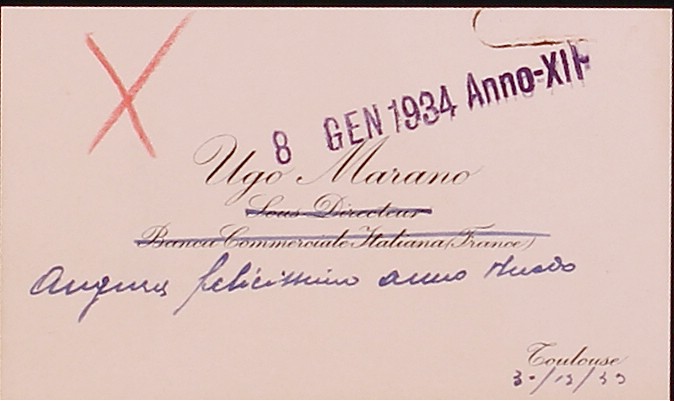 8 GEN 1934 Anno-XII
Ugo Marano
Sous Directeur
Banca Commerciale Italiana (France)
Augura felicissimo anno nuovo
Toulouse
30/12/33